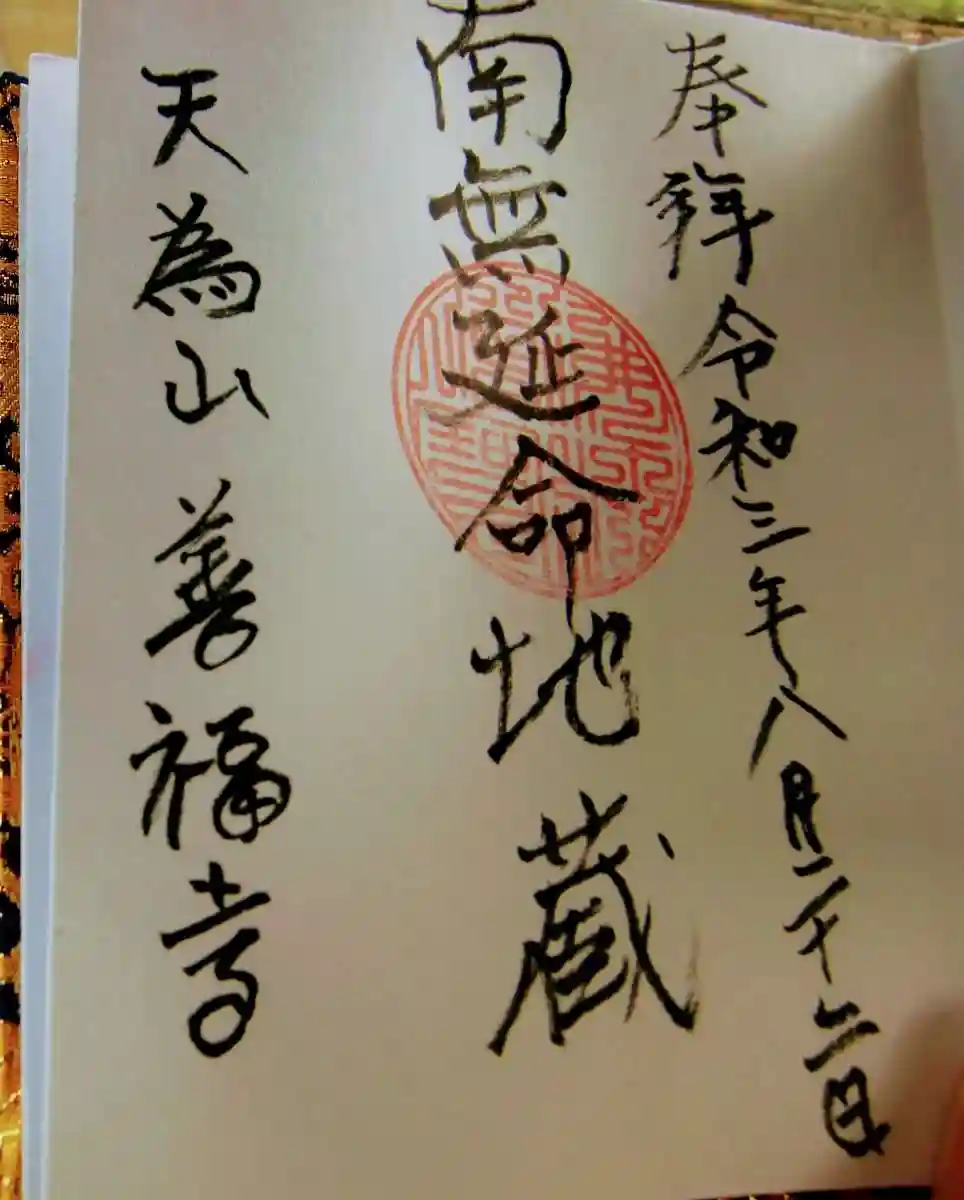 奉拝 令和三年八月二十六日
南無延命地蔵
天為山 善福寺